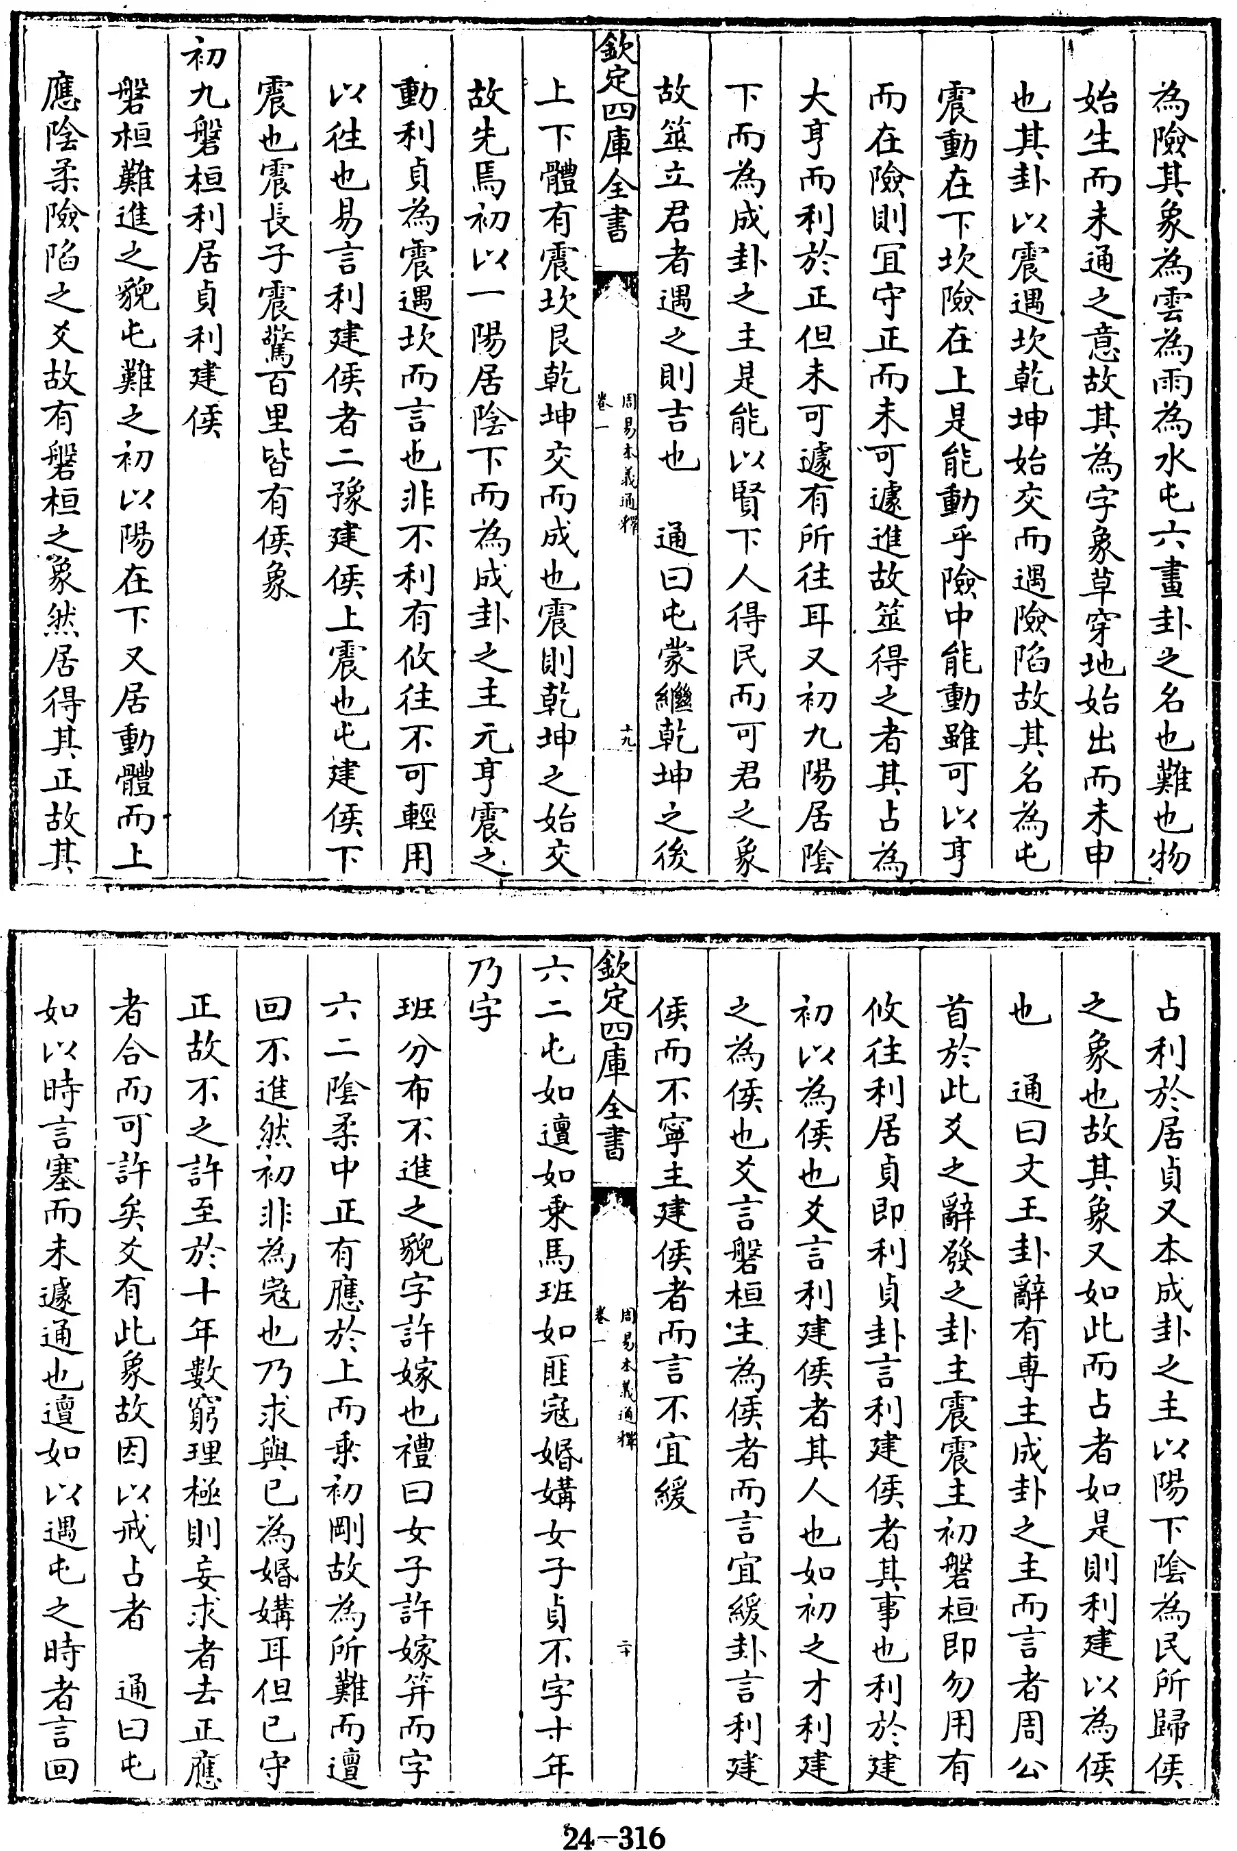 為險其象為雲為雨為水屯六畫卦之名也難也物
始生而未通之意故其為字象草穿地始出而未申
也其卦以震遇坎乾坤始交而遇險陷故其名為屯
震動在下坎險在上是能動乎險中能動雖可以亨
而在險則宜守正而未可遽進故筮得之者其占為
大亨而利於正但未可遽有所往耳又初九陽居陰
下而為成卦之主是能以賢下人得民而可君之象
故筮立君者遇之則吉也　通曰屯蒙繼乾坤之後
欽定四庫全書
周易本義通釋
卷一
十九
上下體有震坎艮乾坤交而成也震則乾坤之始交
故先焉初以一陽居陰下而為成卦之主元亨震之
動利貞為震遇坎而言也非不利有攸往不可輕用
以往也易言利建侯者二豫建侯上震也屯建侯下
震也震長子震驚百里皆有侯象
初九磐桓利居貞利建侯
磐桓難進之貌屯難之初以陽在下又居動體而上
應陰柔險陷之爻故有磐桓之象然居得其正故其
占利於居貞又本成卦之主以陽下陰為民所歸侯
之象也故其象又如此而占者如是則利建以為侯
也　通曰文王卦辭有專主成卦之主而言者周公
首於此爻之辭發之卦主震震主初磐桓即勿用有
攸往利居貞即利貞卦言利建侯者其事也利於建
初以為侯也爻言利建侯者其人也如初之才利建
之為侯也爻言磐桓主為侯者而言宜緩卦言利建
侯而不寧主建侯者而言不宜緩
欽定四庫全書
周易本義通釋
卷一
二十
六二屯如邅如乘馬班如匪寇婚媾女子貞不字十年
乃字
班分布不進之貌字許嫁也禮曰女子許嫁筓而字
六二陰柔中正有應於上而乗初剛故為所難而邅
回不進然初非為寇也乃求與己為婚媾耳但己守
正故不之許至於十年數窮理極則妄求者去正應
者合而可許矣爻有此象故因以戒占者　通曰屯
如以時言塞而未遽通也邅如以遇屯之時者言回
24-316